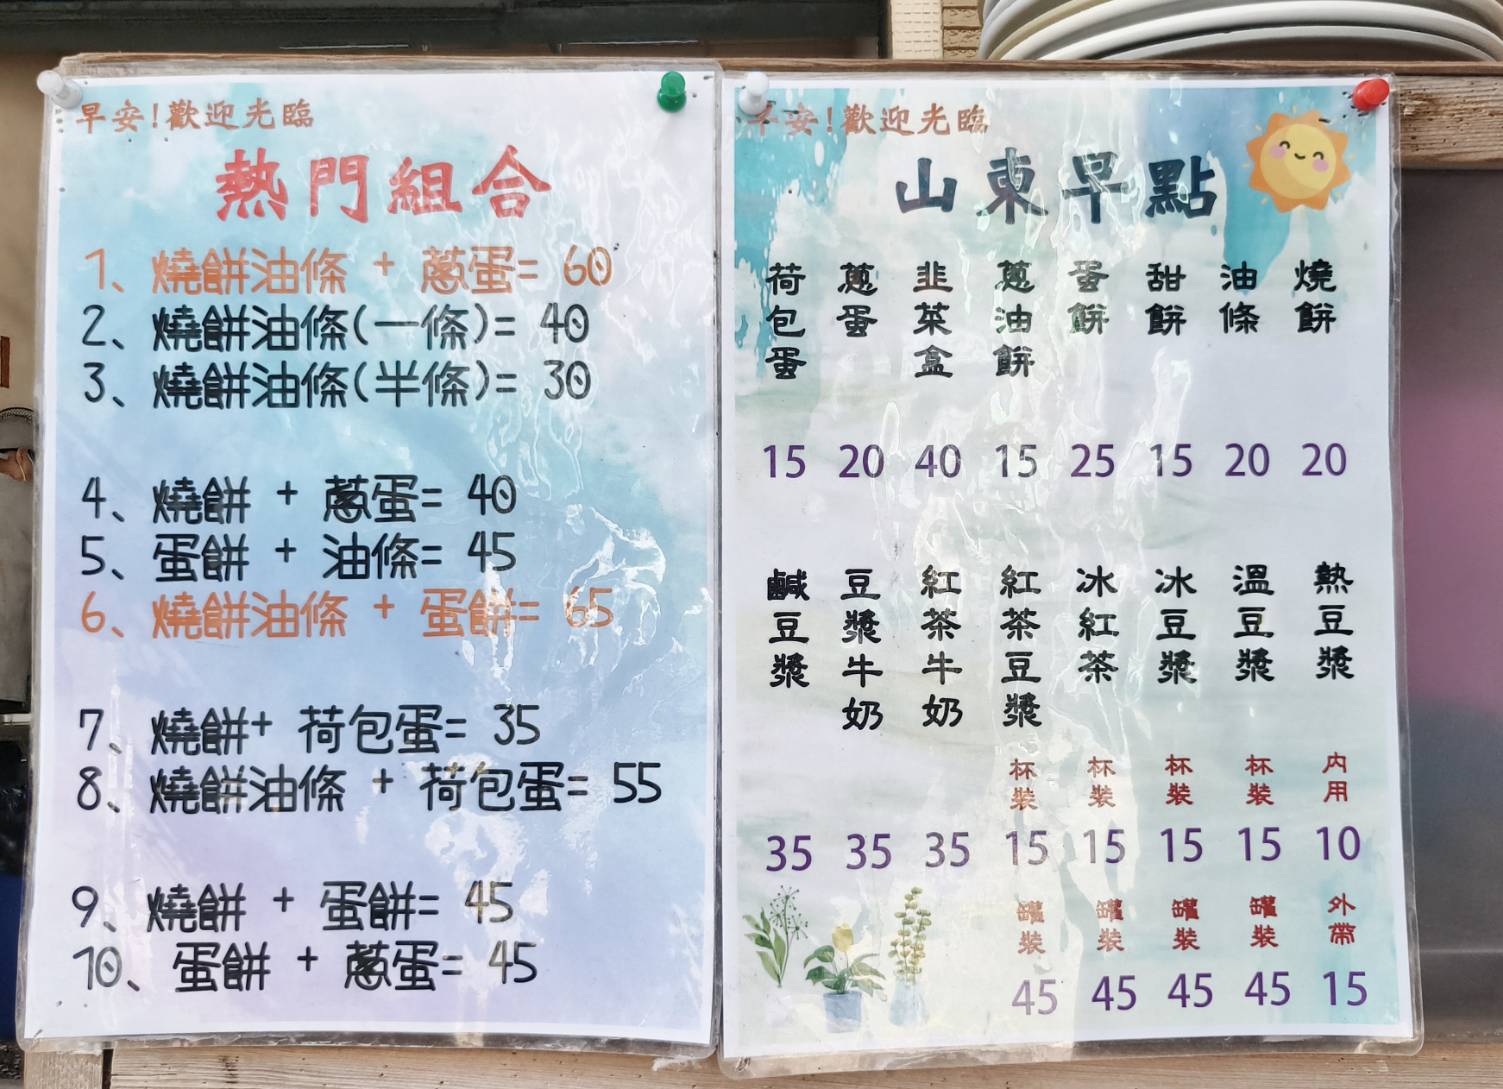 早安!歡迎光臨
熱門組合
1、燒餅油條 + 蔥蛋= 60
2、燒餅油條(一條)= 40
3、燒餅油條(半條)= 30
4、燒餅 + 蔥蛋= 40
5、蛋餅 + 油條= 45
6、燒餅油條 + 蛋餅= 65
7、燒餅+ 荷包蛋= 35
8、燒餅油條 + 荷包蛋= 55
9、燒餅 + 蛋餅= 45
10、蛋餅 + 蔥蛋= 45
早安!歡迎光臨
山東早點
燒餅
20
油條
20
甜餅
15
蛋餅
25
蔥油餅
15
韭菜盒
40
蔥蛋
20
荷包蛋
15
熱豆漿
內用
10
外帶
15
溫豆漿
杯裝
15
罐裝
45
冰豆漿
杯裝
15
罐裝
45
冰紅茶
杯裝
15
罐裝
45
紅茶豆漿
杯裝
15
罐裝
45
紅茶牛奶
35
豆漿牛奶
35
鹹豆漿
35